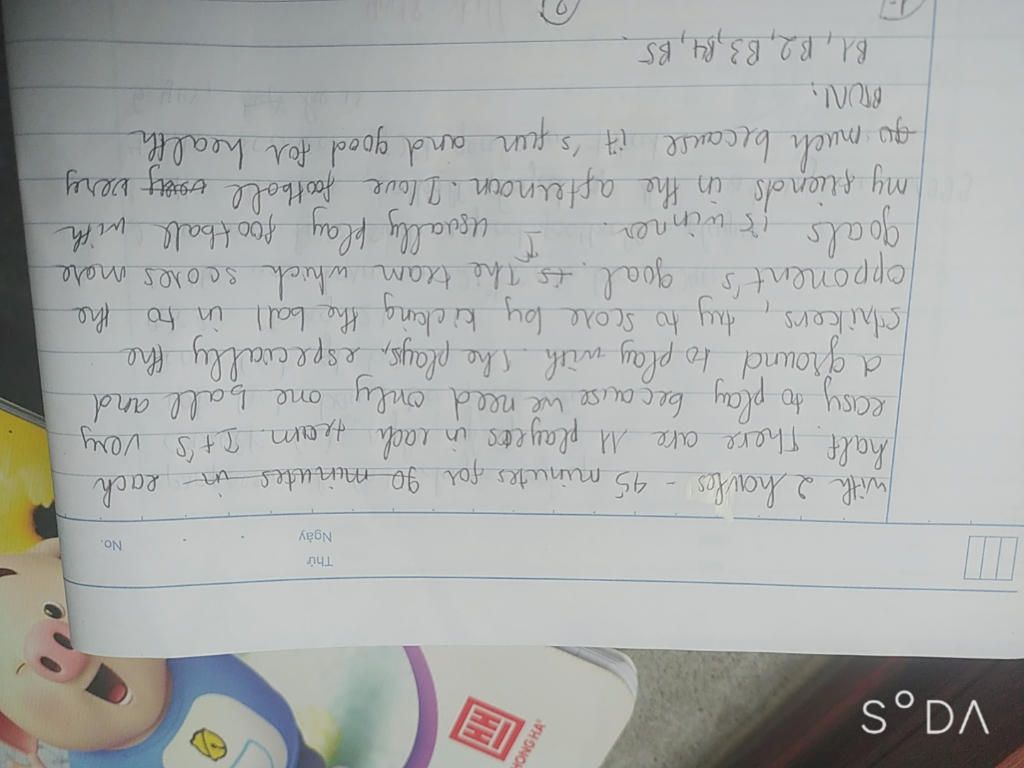 Thứ
Ngày
No.
with 2 haufes - 45 minutes for 90 minutes in each
half. There are 11 players in each team. It's very
easy to play because we need only one ball and
a ground to play with. The plays, especially the
strikers, try to score by kicking the ball in to the
opponent's goal. is The team which scores more
goals is winner. I usually play football with
my friends in the afternoon. I love football very
so much because it's fun and good for health
BTVN:
B1, B2, B3, B4, B5.
HONG HA
S°DA